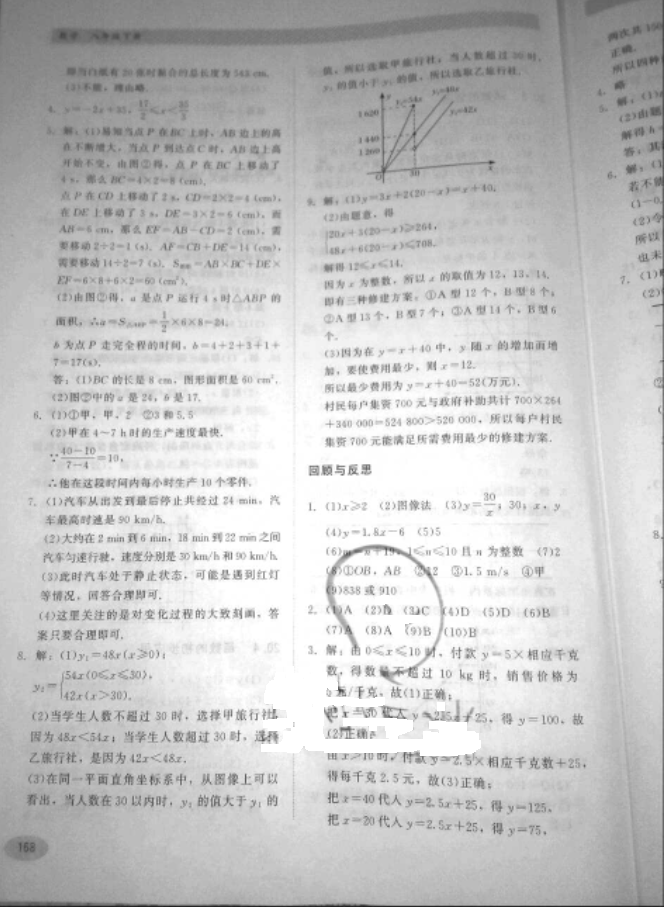 数学 八年级下册
即当白纸有 20 张时黏合的总长度为 543 cm.
(3)不能, 理由略.
4. y=-2x+35, 17/2<x<35/2
5. 解: (1)易知当点 P 在 BC 上时, AB 边上的高
在不断增大, 当点 P 到达点 C 时, AB 边上高
开始不变, 由图②得, 点 P 在 BC 上移动了
4 s, 那么 BC=4×2=8 (cm).
点 P 在 CD 上移动了 2 s, CD=2×2=4 (cm),
在 DE 上移动了 3 s, DE=3×2=6 (cm), 而
AB=6 cm, 那么 EF=AB-CD=2 (cm), 需
要移动 2÷2=1 (s). AF=CB+DE=14 (cm),
需要移动 14÷2=7 (s). S =AB×BC+DE×
EF=6×8+6×2=60 (cm²).
(2)由图②得, a 是点 P 运行 4 s 时△ABP 的
面积, ∴a=S△ABP=1/2×6×8=24,
b 为点 P 走完全程的时间, b=4+2+3+1+
7=17(s).
答: (1)BC 的长是 8 cm, 图形面积是 60 cm².
(2)图②中的 a 是 24, b 是 17.
6. (1)①甲, 甲, 2 ②3 和 5.5
(2)甲在 4~7 h 时的生产速度最快.
∵(40-10)/(7-4)=10,
∴他在这段时间内每小时生产 10 个零件.
7. (1)汽车从出发到最后停止共经过 24 min, 汽
车最高时速是 90 km/h.
(2)大约在 2 min 到 6 min, 18 min 到 22 min 之间
汽车匀速行驶, 速度分别是 30 km/h 和 90 km/h.
(3)此时汽车处于静止状态, 可能是遇到红灯
等情况, 回答合理即可.
(4)这里关注的是对变化过程的大致刻画, 答
案只要合理即可.
8. 解: (1)y₁=48x(x≥0);
y₂={54x(0≤x≤30),
42x(x>30).
(2)当学生人数不超过 30 时, 选择甲旅行社,
因为 48x<54x; 当学生人数超过 30 时, 选择
乙旅行社, 是因为 42x<48x.
(3)在同一平面直角坐标系中, 从图像上可以
看出, 当人数在 30 以内时, y₂ 的值大于 y₁ 的
168
值, 所以选取甲旅行社, 当人数超过 30 时,
y₂ 的值小于 y₁ 的值, 所以选取乙旅行社.
y
y₁=48x
y₂=54x
y₂=42x
1 620
1 440
1 260
0
30
x
9. 解: (1)y=3x+2(20-x)=x+40.
(2)由题意, 得
{20x+3(20-x)≥264,
48x+6(20-x)≤708.
解得 12≤x≤14.
因为 x 为整数, 所以 x 的取值为 12, 13, 14.
即有三种修建方案: ①A 型 12 个, B 型 8 个;
②A 型 13 个, B 型 7 个; ③A 型 14 个, B 型 6
个.
(3)因为在 y=x+40 中, y 随 x 的增加而增
加, 要使费用最少, 则 x=12.
所以最少费用为 y=x+40=52(万元).
村民每户集资 700 元与政府补助共计 700×264
+340 000=524 800>520 000, 所以每户村民
集资 700 元能满足所需费用最少的修建方案.
回顾与反思
1. (1)x≥2 (2)图像法 (3)y=30/x; 30; x, y
(4)y=1.8x-6 (5)5
(6)m=n+19, 1≤n≤10 且 n 为整数 (7)2
(8)①OB, AB ②12 ③1.5 m/s ④甲
(9)838 或 910
2. (1)A (2)B (3)C (4)D (5)D (6)B
(7)A (8)A (9)B (10)B
3. 解: 由 0≤x≤10 时, 付款 y=5×相应千克
数, 得数量不超过 10 kg 时, 销售价格为
元/千克, 故(1)正确;
把 x=30 代入 y=2.5x+25, 得 y=100, 故
(2)正确;
由 x>10 时, 付款 y=2.5×相应千克数+25,
得每千克 2.5 元, 故(3)正确;
把 x=40 代入 y=2.5x+25, 得 y=125,
把 x=20 代入 y=2.5x+25, 得 y=75,
两次共 150
正确.
所以四种
4. 略
5. 解: (1)
(2)由题
解得
答: 其
6. 解: (1)
若不
(2)令
所以
也未
7. (1)
(2)
8.